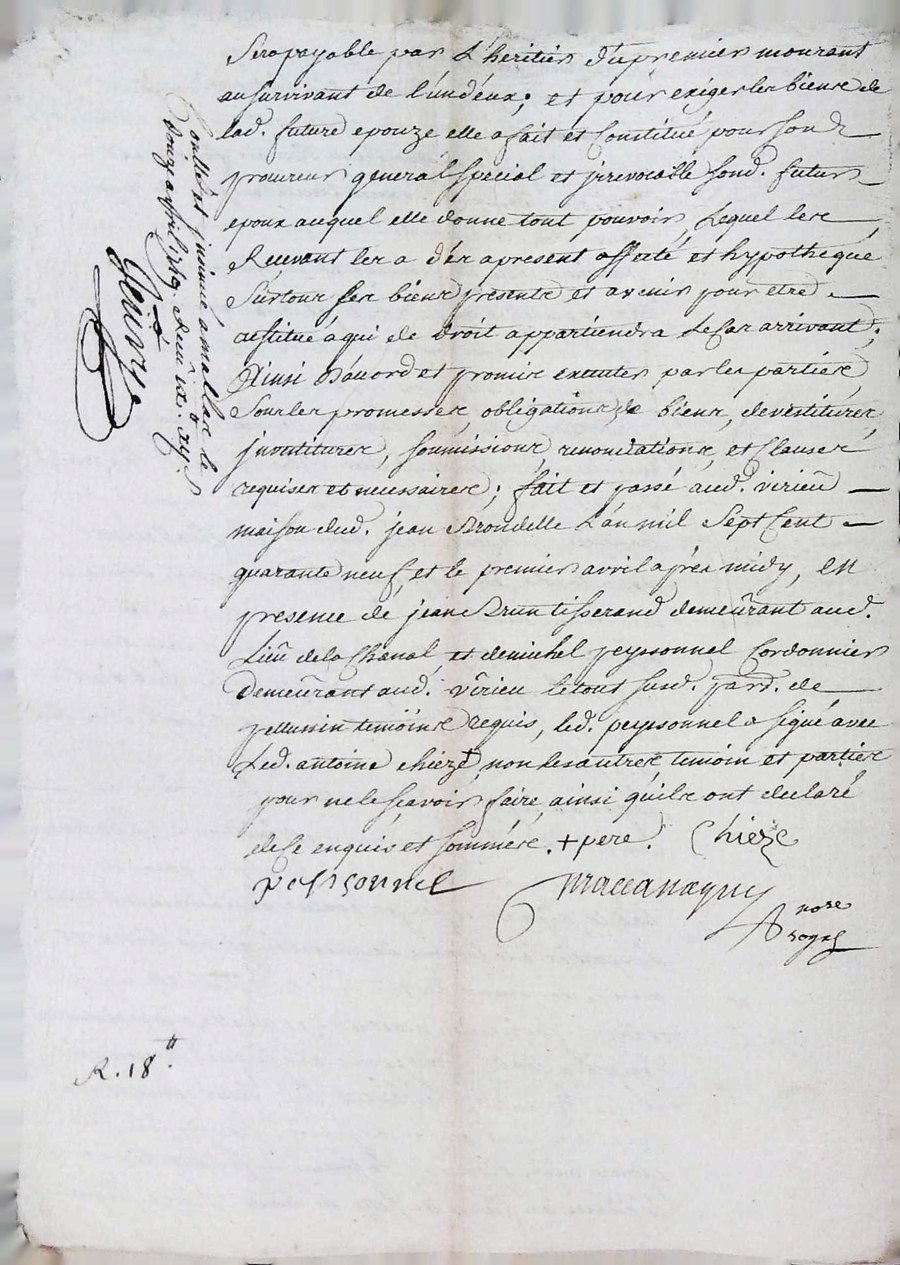 Sera payable par L'heritier du premier mourant
au survivant de L'undeux; et pour exiger les biens de
lad. future epouze elle a fait et Constitué pour son
procureur general special et jrrevocable sond. futur
epoux auquel elle donne tout pouvoir, Lequel les
Recevant les a dés apresent affecté et hypotheque
Sur tous ses biens presents et avenir pour etre
restitué à qui de droit appartiendra Le Cas arrivant;
Ainsi D'accord et promis executer par les parties,
Sous les promesses, obligations, de biens, devestitures
jnvestitures, soumissions, renonciations, et Clauses
requises et necessaires; fait et passé aud. virieu
maison dud. jean Brondelle L'an mil Sept Cent
quarante neuf et le premier avril aprés midy, en
presence de jean Brun tisserand demeurant aud.
Lieu de la Chanal, et de michel peyssonnel Cordonnier
Demeurant aud. virieu le tout susd. parr. de
pellussin temoins requis, led. peyssonnel a signé avec
Led. antoine chieze + non les autres temoin et parties
pour ne le sçavoir faire, ainsi quils ont declaré
de ce enquis et sommés. + pere. Chieze
peyssonnel
nore
royal
Conllé et jnsinué a malleval le
douze avril 1749. Receu
R. 18 ₶.